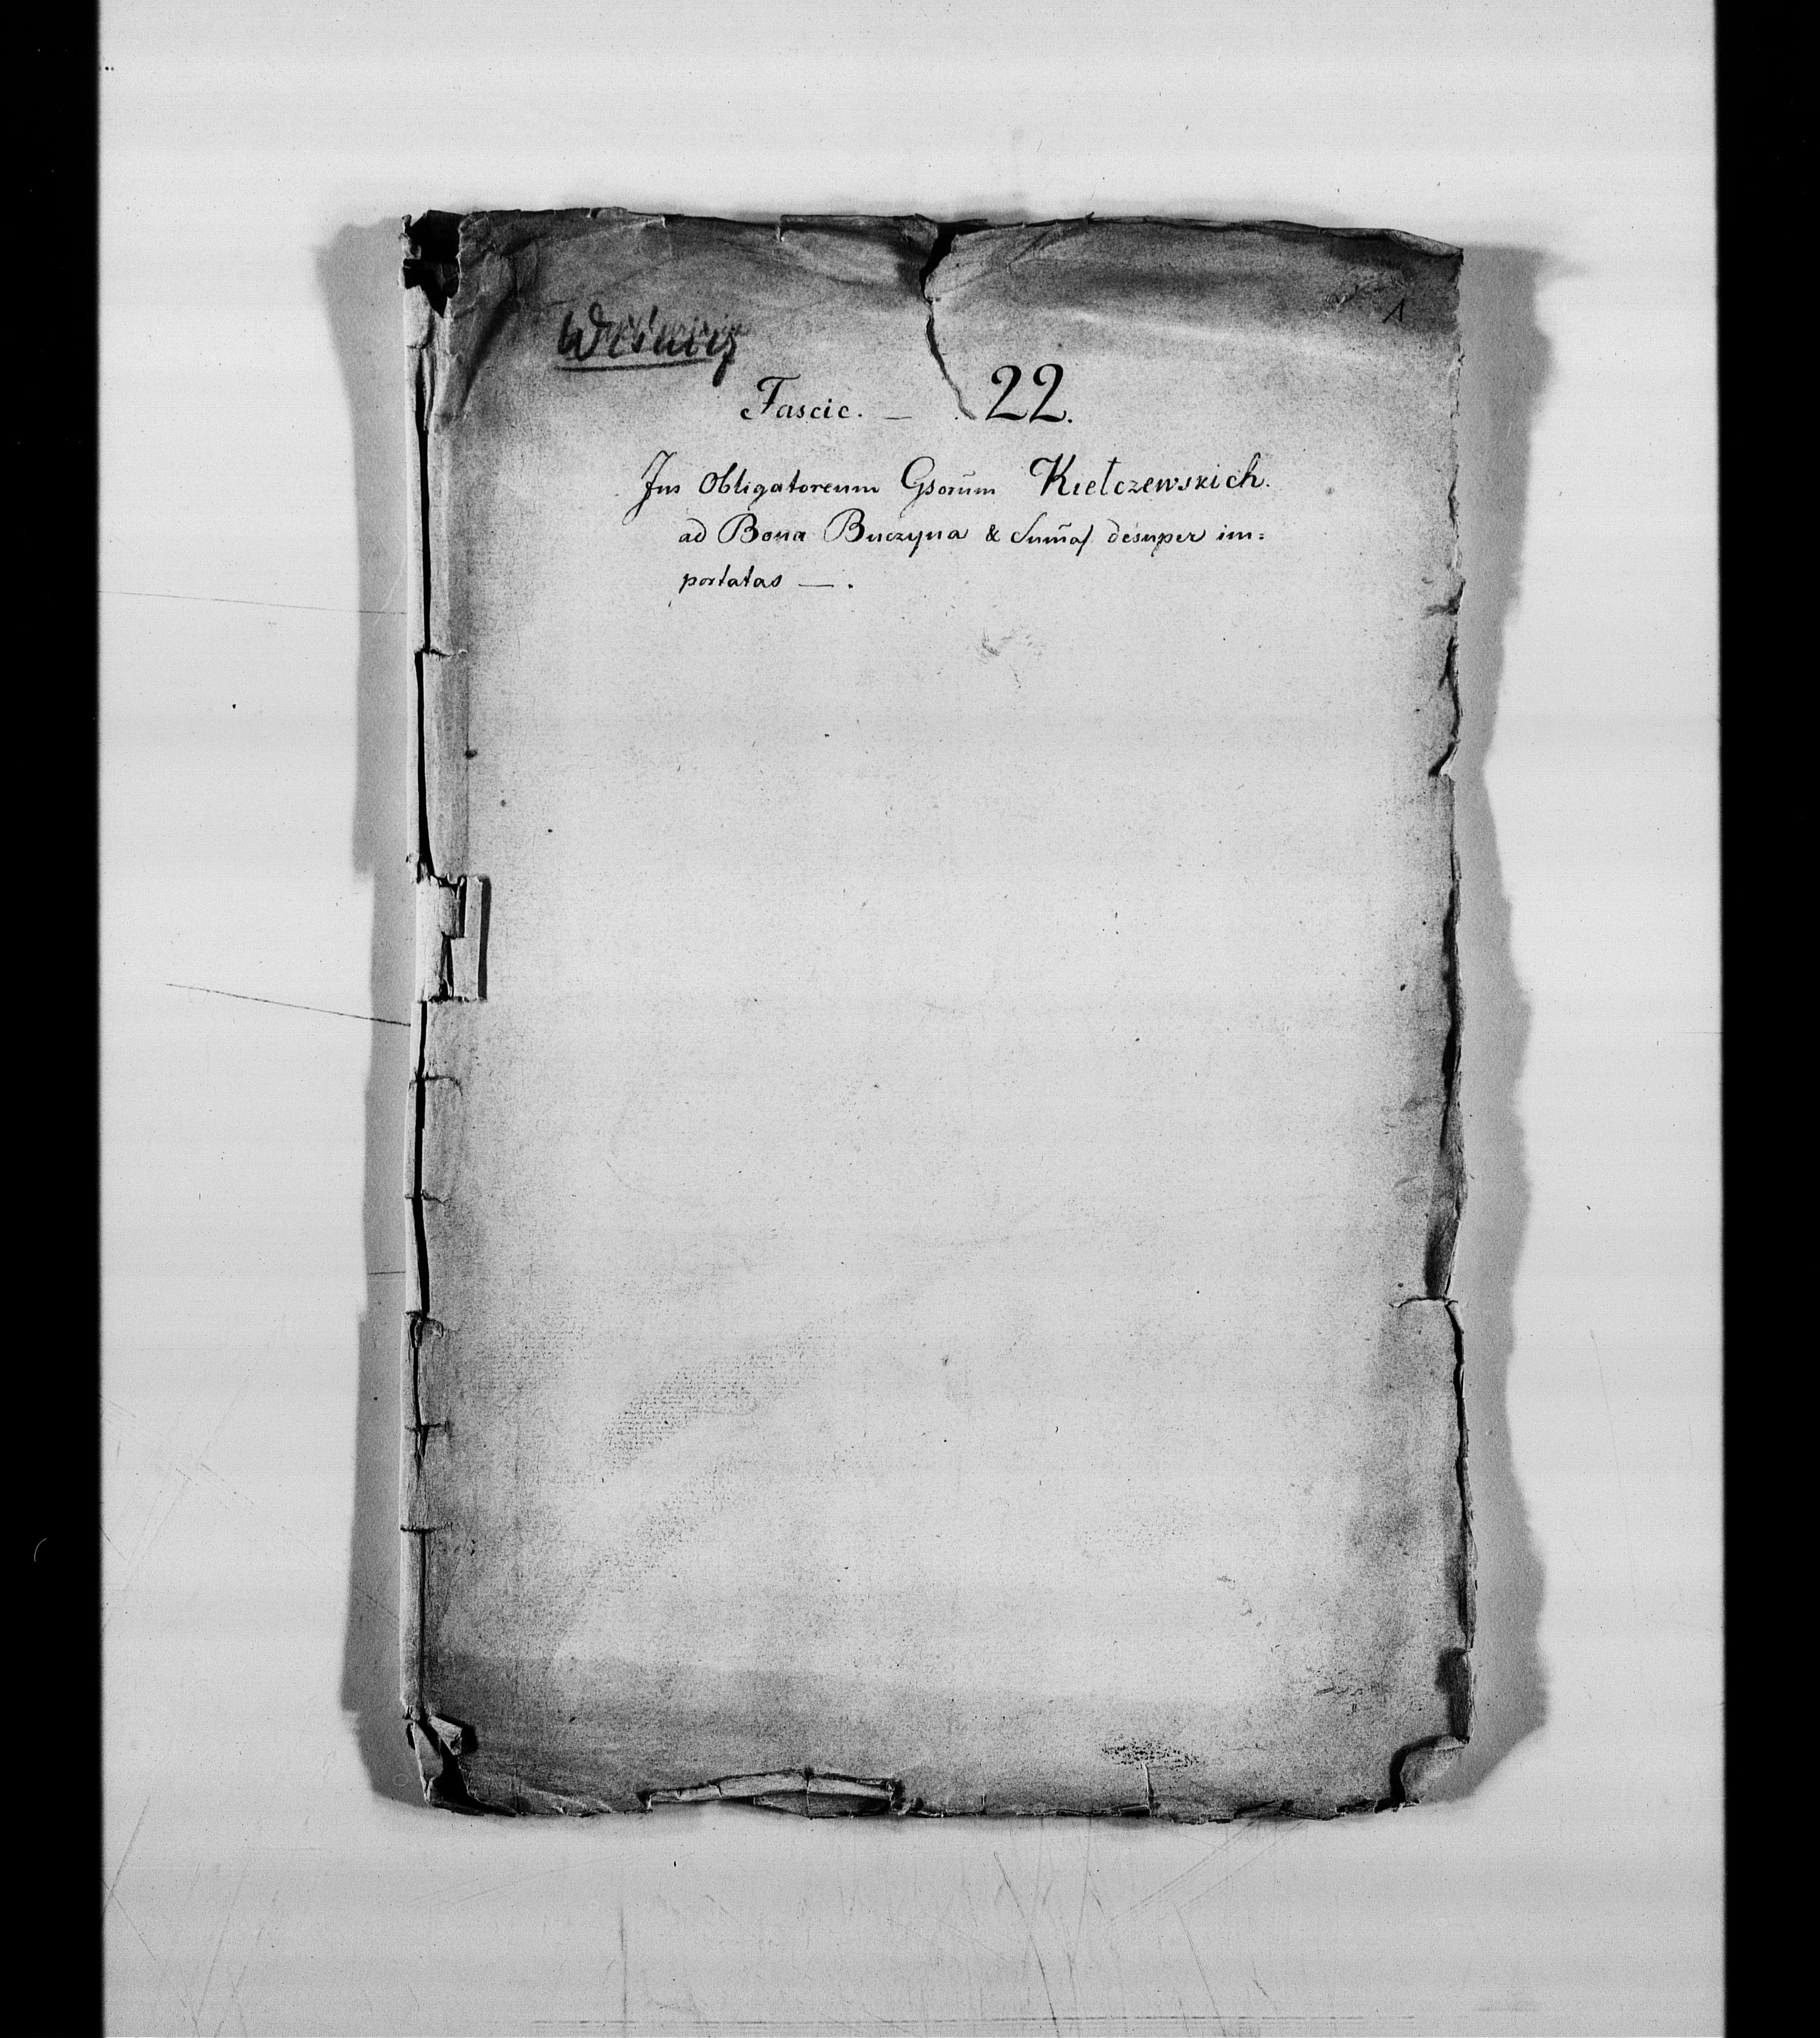 1
Wiśnicz
Fascic. — 22.
Jus Obligatoreum Gsorum̃ Kiełczewskich.
ad Bona Buczyna & Sum̃as desuper im=
portatas — .